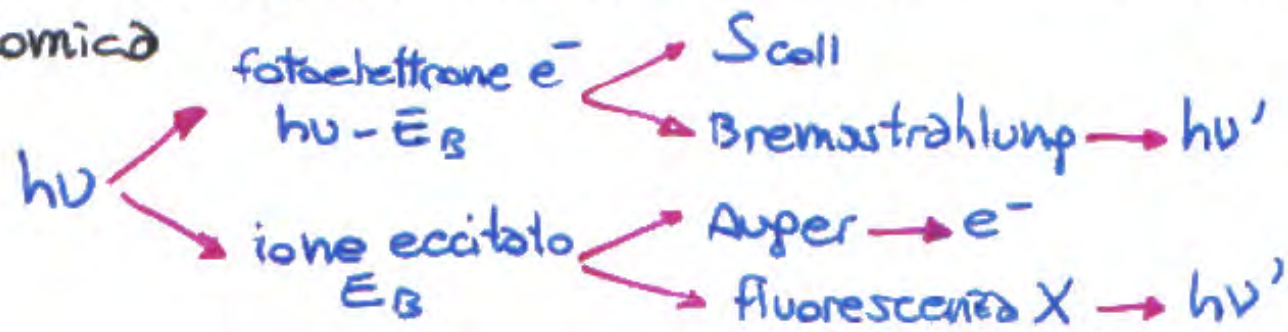 omica
fotoelettrone e⁻ → Scoll
hν - E_B → Bremsstrahlung → hν'
hν
ione eccitato → Auger → e⁻
E_B → fluorescenza X → hν'